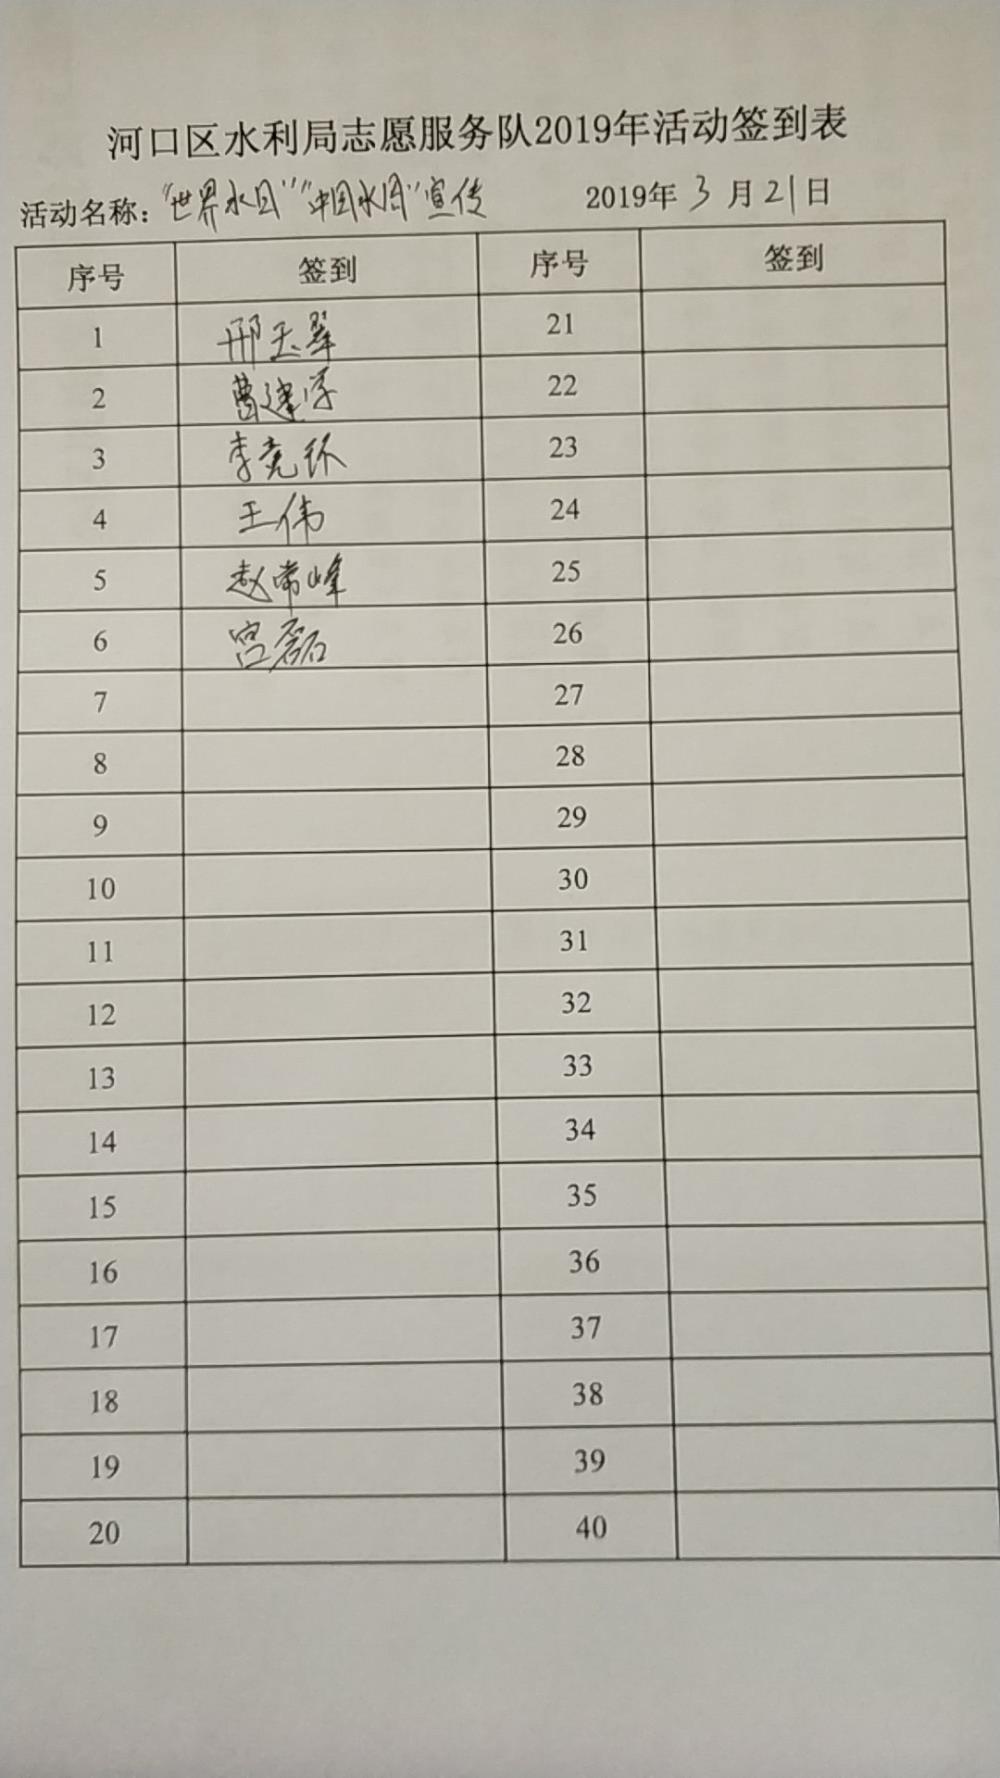 河口区水利局志愿服务队2019年活动签到表
活动名称：“世界水日”“中国水周”宣传 2019年3月21日
序号 签到 序号 签到
1 邢玉翠 21
2 曹建学 22
3 李竞环 23
4 王伟 24
5 赵常峰 25
6 宫磊 26
7 27
8 28
9 29
10 30
11 31
12 32
13 33
14 34
15 35
16 36
17 37
18 38
19 39
20 40